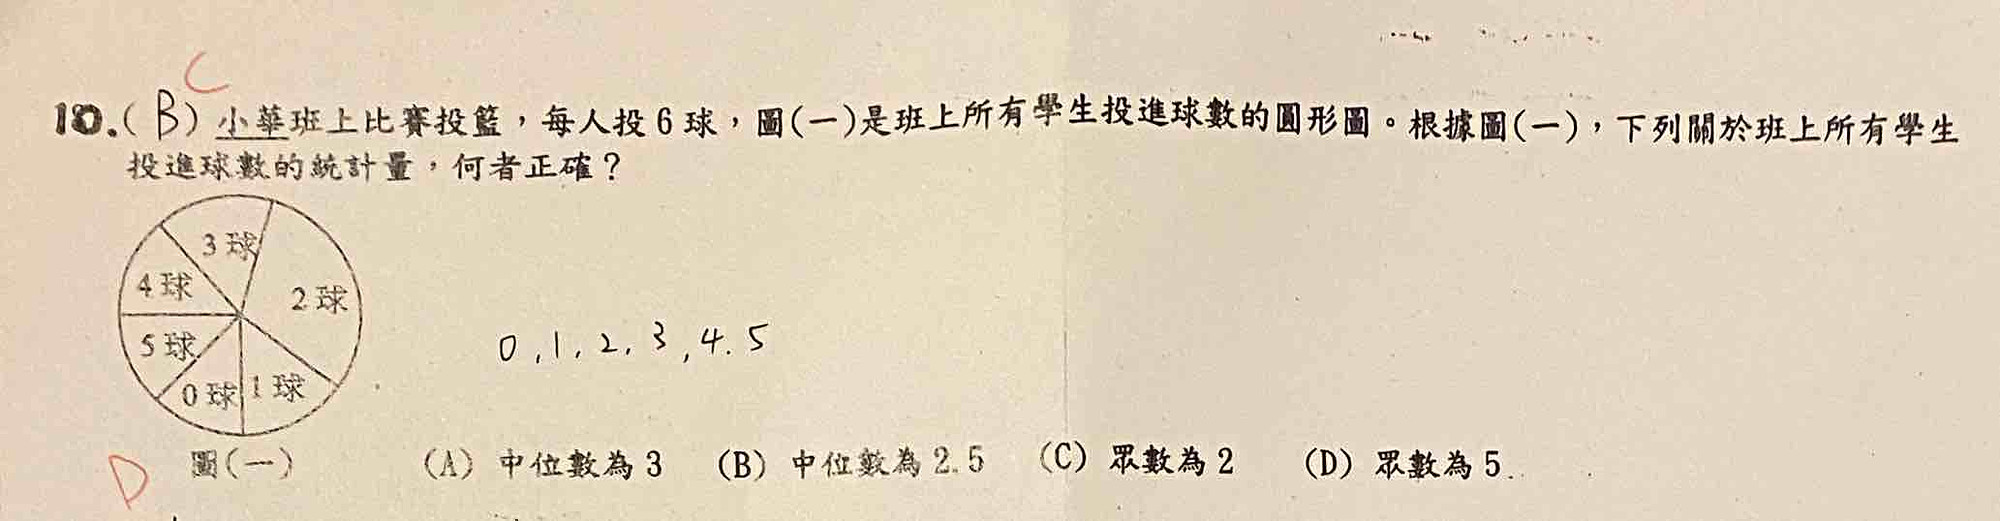 C
10.(B)小華班上比賽投籃，每人投6球，圖(一)是班上所有學生投進球數的圓形圖。根據圖(一)，下列關於班上所有學生
投進球數的統計量，何者正確？
3球
4球
2球
5球
0球
1球
0,1,2,3,4.5
圖(一)
(A) 中位數為3 (B) 中位數為2.5 (C) 眾數為2 (D) 眾數為5.
D